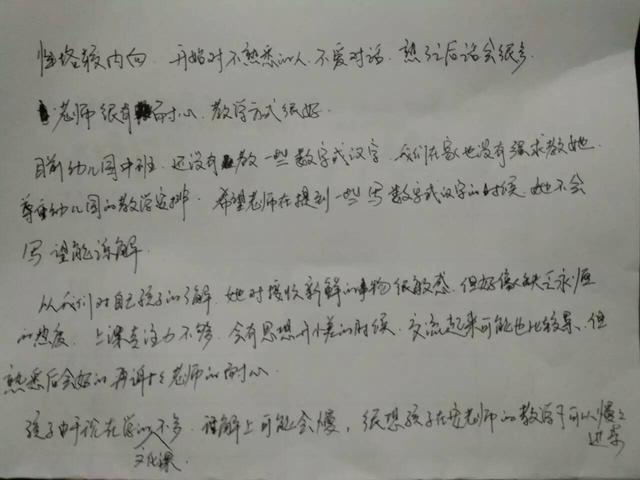 性格较内向 开始对不熟悉的人不爱对话 熟了后话会很多
老师很有耐心 教学方式很好
目前幼儿园中班 还没有教一些数字或汉字 我们在家也没有强求教她
尊重幼儿园的教学安排 希望老师在提到一些写数字或汉字的时候 她不会
写 望能谅解
从我们对自己孩子的了解 她对接收新鲜的事物很敏感 但好像缺乏永恒
的热度 上课专注力不够 会有思想开小差的时候 交流起来可能也比较 但
熟悉后会好的 再谢 老师的耐心
孩子由于现在学的文化课不多 讲解上可能会慢 很想孩子在老师的教学下可以慢慢
进步